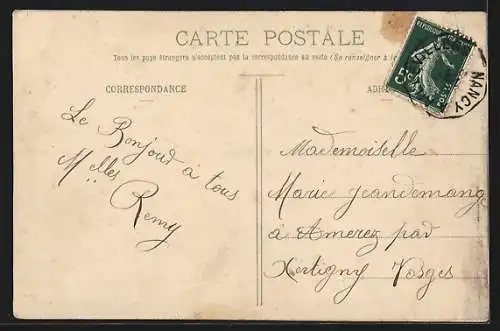 CARTE POSTALE
Tous les pays étrangers n'acceptent pas la correspondance au verso (Se renseigner à
CORRESPONDANCE
ADR
NANCY
Le Bonjour à tous
Melles Remy
Mademoiselle
Marie Jeandemange
à Amerey par
Xertigny Vosges